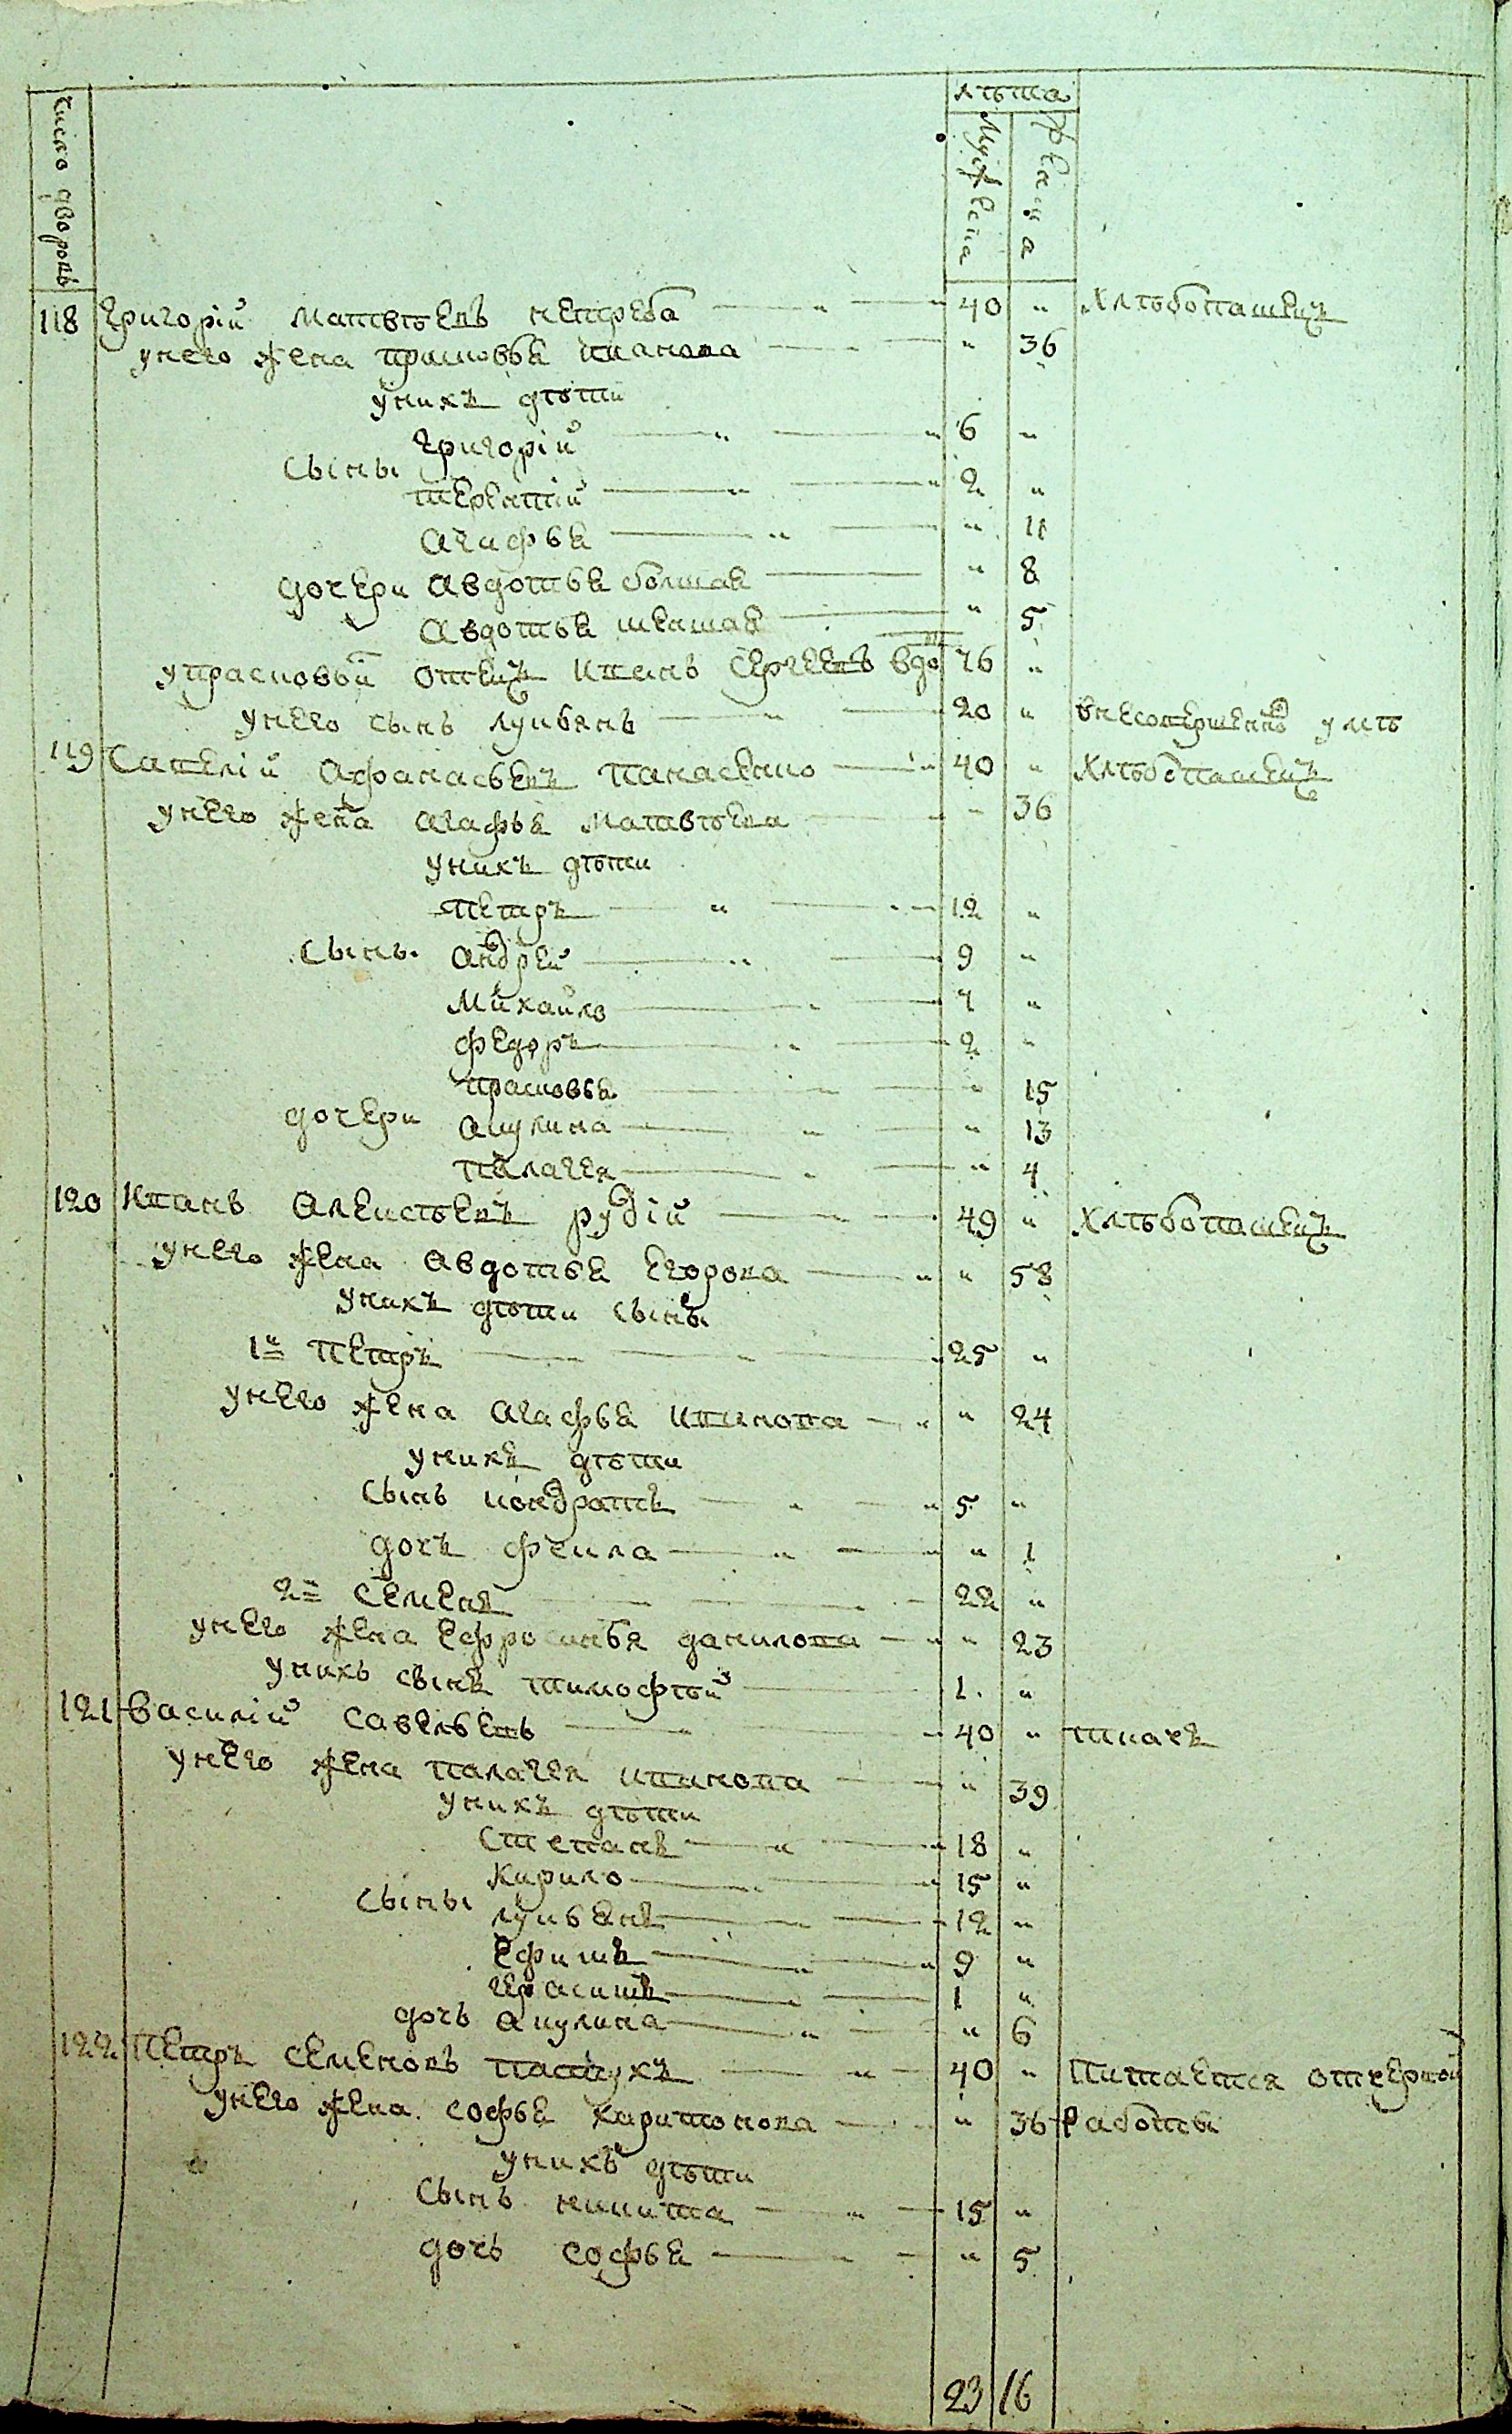 число дворовъ
лѣта
Мужеска
Женска
118 Григорій Матвѣевъ нетреба 40 " Хлѣбопашецъ
унего жена прасковья иванова " 36
унихъ дѣти
Григорій 6 "
сыны
терентій 2 "
Агафья " 11
дочери Авдотья болшая " 8
Авдотья меншая " 5
упрасковьи отецъ Иванъ Сергеевъ вдо 76 "
унего сынъ лукьянъ 20 " внесовершенномъ умѣ
119 Савелій Афанасьевъ панасенко 40 " Хлѣбопашецъ
унего жена Агафья Матвѣева " 36
унихъ дѣти
петръ 12 "
сыны Андрей 9 "
Михайло 7 "
федоръ 2 "
прасковья " 15
дочери Акулина " 13
пелагея " 4
120 Иванъ Алексѣевъ рудій 49 " Хлѣбопашецъ
унего жена Авдотья Егорова " 58
унихъ дѣти сыны
1й Петръ 25 "
унего жена Агафья ивинова " 24
унихъ дѣти
сынъ кондратъ 5 "
дочъ фекла " 1
2й Семенъ 22 "
унего жена Ефросинья данилова " 23
унихъ сынъ тимофѣй 1 "
121 Василій Савельевъ 40 " ткачъ
унего жена палагея ивинова " 39
унихъ дѣти
Степанъ 18 "
Кирило 15 "
сыны
лукьянъ 12 "
Ефимъ 9 "
Герасимъ 1 "
дочь Акулина " 6
122 Петръ Семеновъ пастухъ 40 " Питается отчерной
унего жена софья Харитонова " 36 Работы
унихъ дѣти
Сынъ никита 15 "
дочь софья " 5
23 16